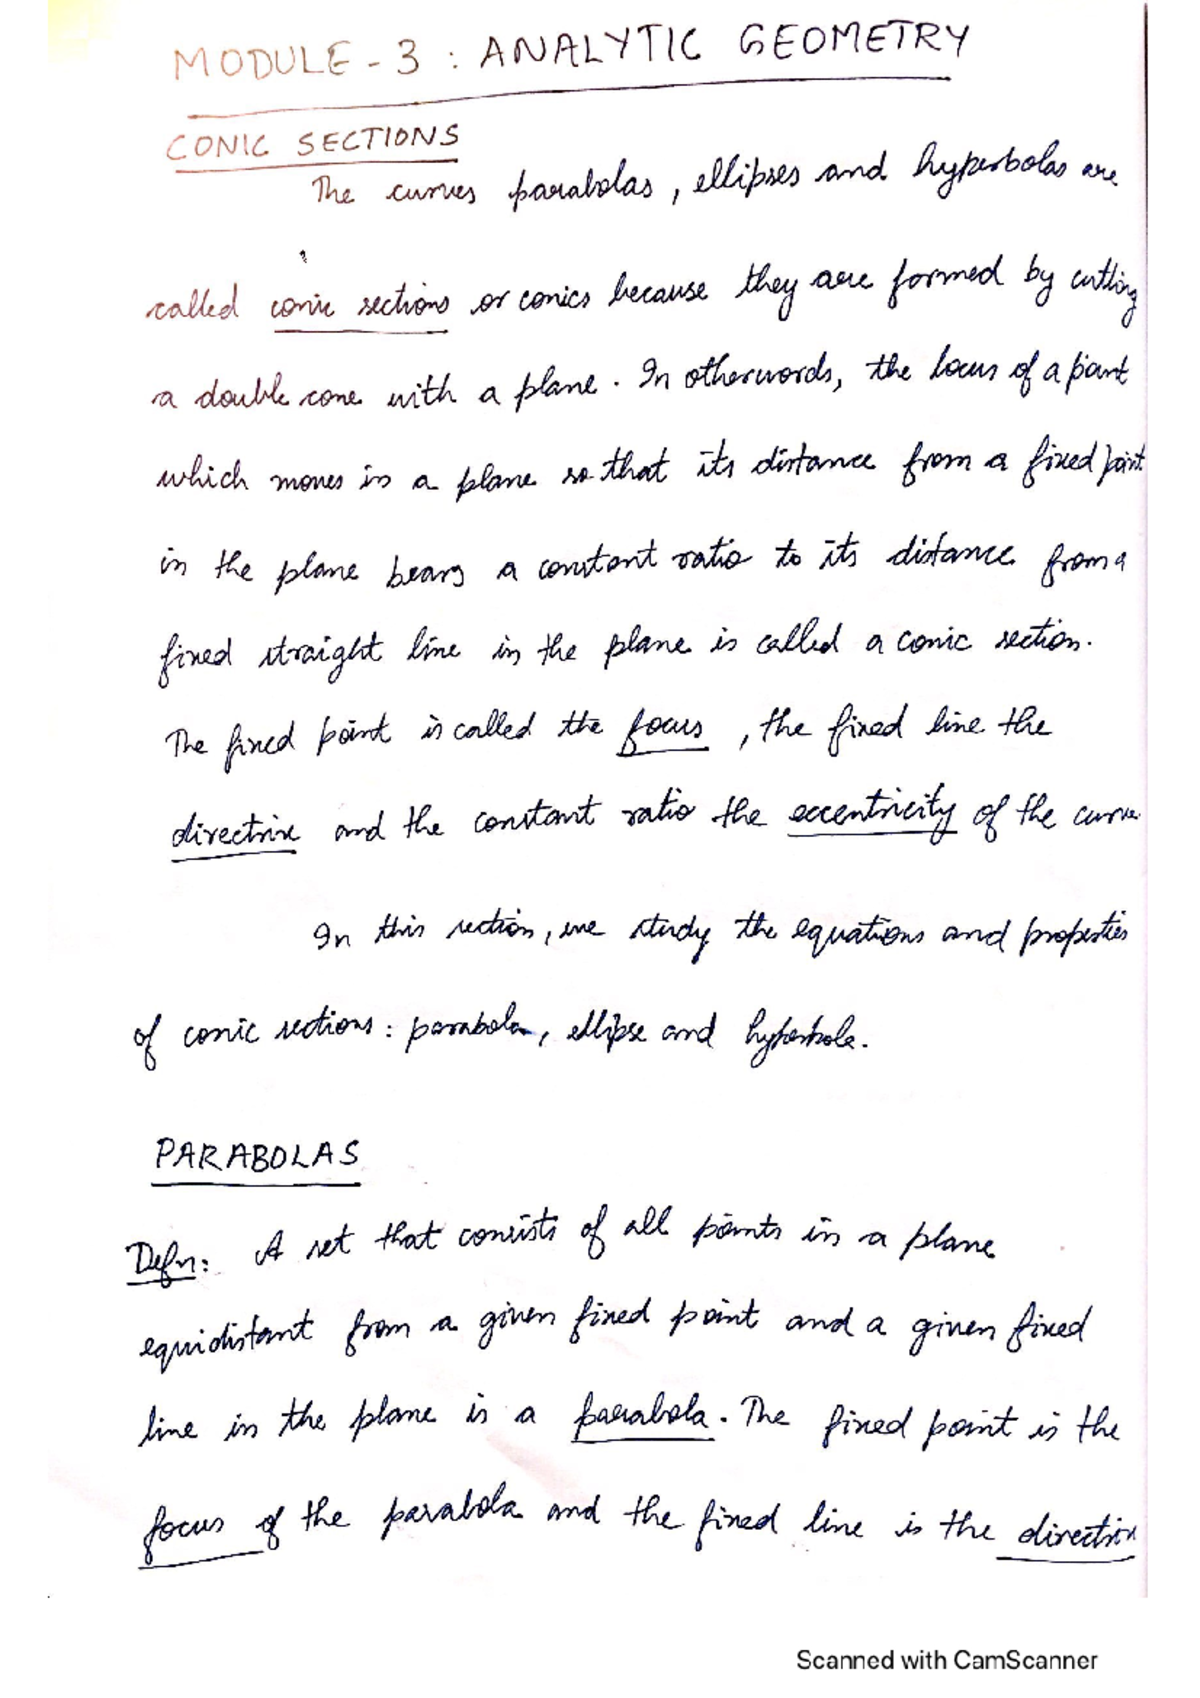 MODULE - 3 : ANALYTIC GEOMETRY
CONIC SECTIONS
The curves parabolas, ellipses and hyperbolas are
called conic sections or conics because they are formed by cutting
a double cone with a plane. In otherwords, the locus of a point
which moves in a plane so that its distance from a fixed point
in the plane bears a constant ratio to its distance from a
fixed straight line in the plane is called a conic section.
The fixed point is called the focus, the fixed line the
directrix and the constant ratio the eccentricity of the curve.
In this section, we study the equations and properties
of conic sections: parabola, ellipse and hyperbola.
PARABOLAS
Defn: A set that consists of all points in a plane
equidistant from a given fixed point and a given fixed
line in the plane is a parabola. The fixed point is the
focus of the parabola and the fixed line is the directrix
Scanned with CamScanner